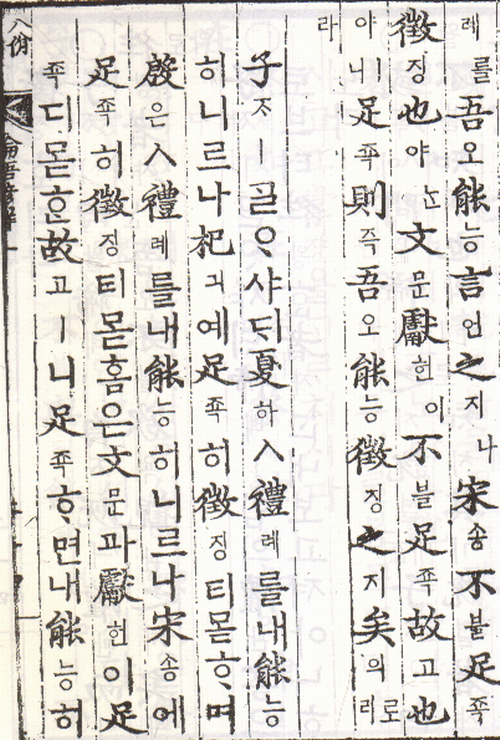 례를吾오能능言언之지나宋송不블足족
徵징也야는文문獻헌이不블足족故고也
야니足족則즉吾오能능徵징之지矣의리로
라
子ᄌㅣᄀᆞᆯᄋᆞ샤ᄃᆡ夏하ㅅ禮례를내能능
히니르나杞긔예足족히徵징티몯ᄒᆞ며
殷은ㅅ禮례를내能능히니르나宋송에
足족히徵징티몯홈은文문과獻헌이足
족디몯ᄒᆞᆫ故고ㅣ니足족ᄒᆞ면내能능히
八佾